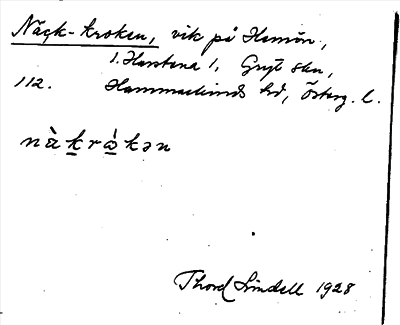 Näck-kroken, vik på Hamön,
1. Harstena 1, Gryt skn,
112. Hammarkinds hd, Österg. l.
nàkrọ́kən
Thord Lindell 1928